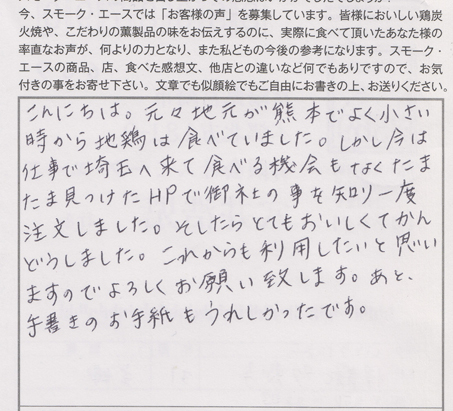 今、スモーク・エースでは「お客様の声」を募集しています。皆様においしい鶏炭
火焼や、こだわりの薫製品の味をお伝えするのに、実際に食べて頂いたあなた様の
率直なお声が、何よりの力となり、また私どもの今後の参考になります。スモーク・
エースの商品、店、食べた感想文、他店との違いなど何でもありですので、お気
付きの事をお寄せ下さい。文章でも似顔絵でもご自由にお書きの上、お送りください。
こんにちは。元々地元が熊本でよく小さい
時から地鶏は食べていました。しかし今は
仕事で埼玉へ来て食べる機会もなくたま
たま見つけたHPで御社の事を知り一度
注文しました。そしたらとてもおいしくてかん
どうしました。これからも利用したいと思い
ますのでよろしくお願い致します。あと、
手書きのお手紙もうれしかったです。